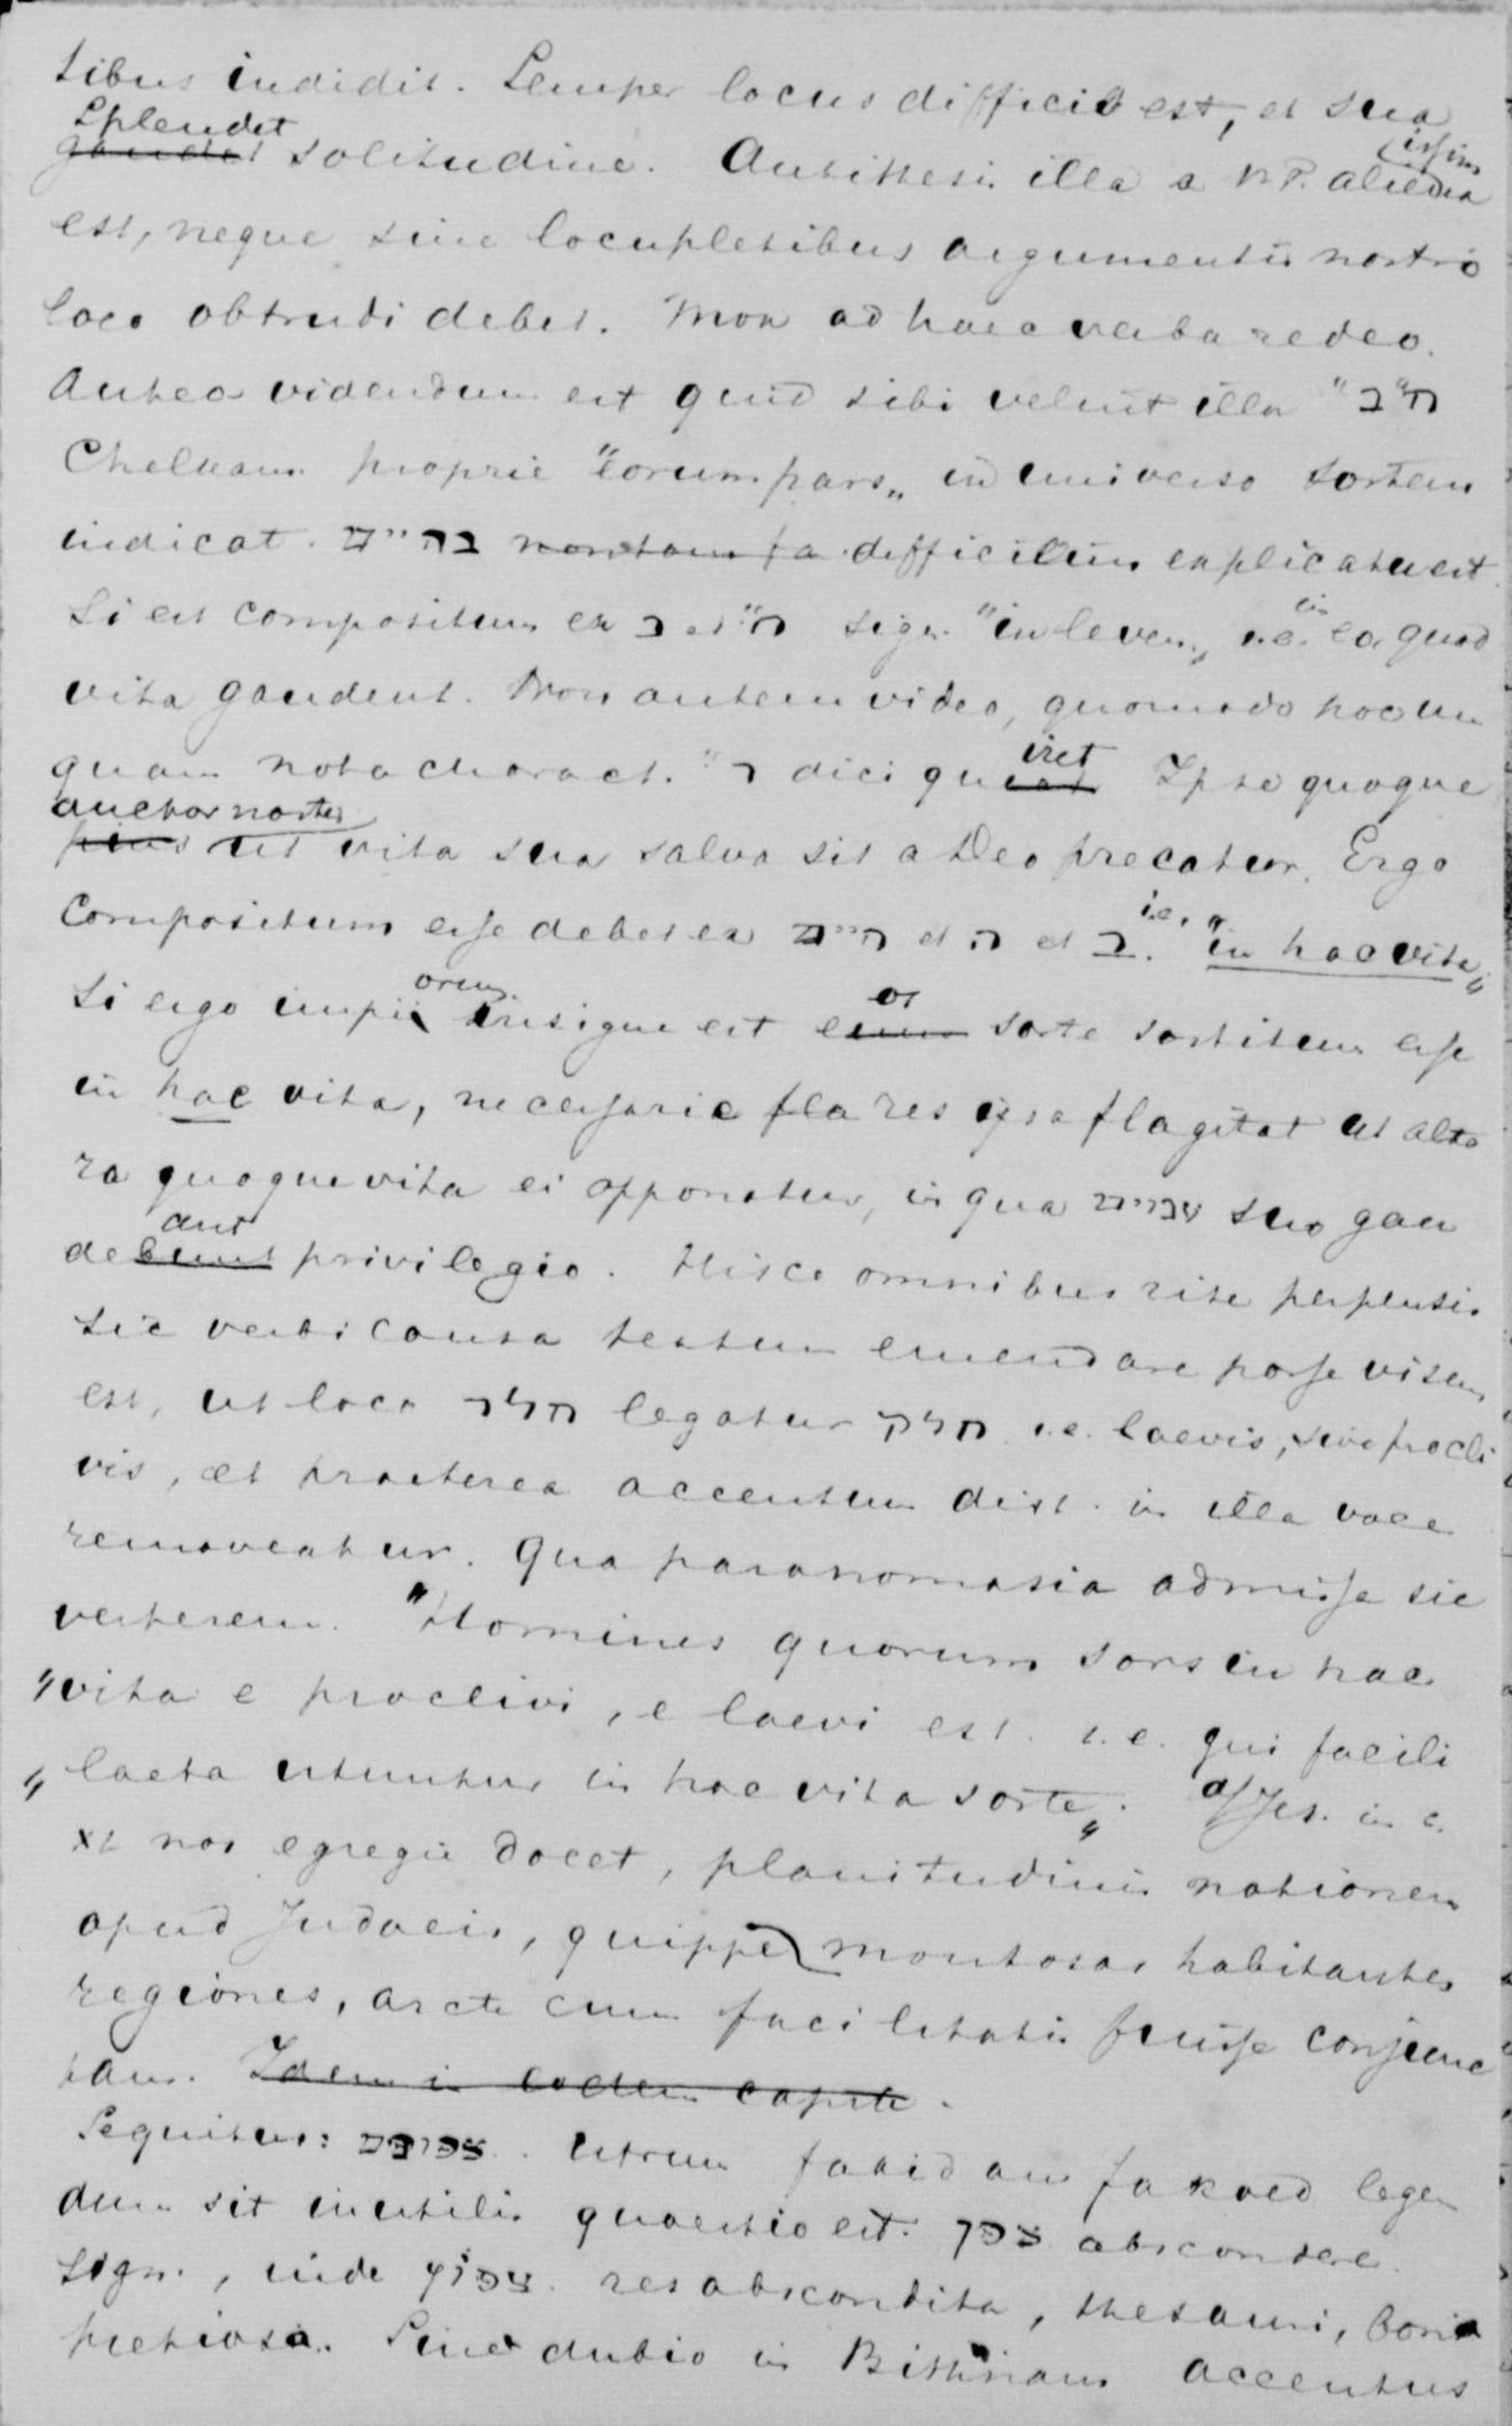 tibus indidit. Semper locus difficil est, et sua
Splendet
gaudet solitudine. Antithesis illa a V.T. aliena issima
est, neque sine locupletibus argumentis nostro
loco obtrudi debet. Mox ad haec verba redeo.
Antea videndum est quid sibi velint illa
Chelkam proprie "eorum pars„ in universo sortem
indicat. difficilius explicatu est
Si est compositum ex ב et sign. "in leven„ i.e. in eo quod
vita gaudent. Non autem video, quomodo hoc un
quam nota charact. dici quiret Ipse quoque
auctor noster
pius ut vita sua salva sit a Deo precatur. Ergo
compositum esse debet ex et ה et ב. i.e. "in hac vita„
Si ergo impiorum insigne est eos sorte sortitum esse
in hac vita, necessarie fla res ipsa flagitat ut alte
ra quoque vita ei opponatur, in qua suo gau
deant privilegio. Hisce omnibus rite perpensis
sic verbi causa textum emendare posse visum
est, ut loco legatur חלק i.e. laevis, sive procli
vis, et praeterea accentum dist. in illa voce
removeatur. Qua paranomasia admissa sic
verterem. "Homines quorum sors in hac
"vita e proclivi, e laevi est. i.e. qui facili
„laeta utuntur in hac vita sorte„. Jes. in c.
XL nos egregie docet, planitudinis notionem
apud Judaeis, quippe montosas habitantes
regiones, arcte cum facilitatis fuisse conjunc
tam. Idem in eodem capite.
Sequitur: Utrum an legen
dum sit inutilis quaestio est. צפן abscondere
sign., inde צפון res abscondita, thesauri, bona
pretiosa. Sine dubio in accentus